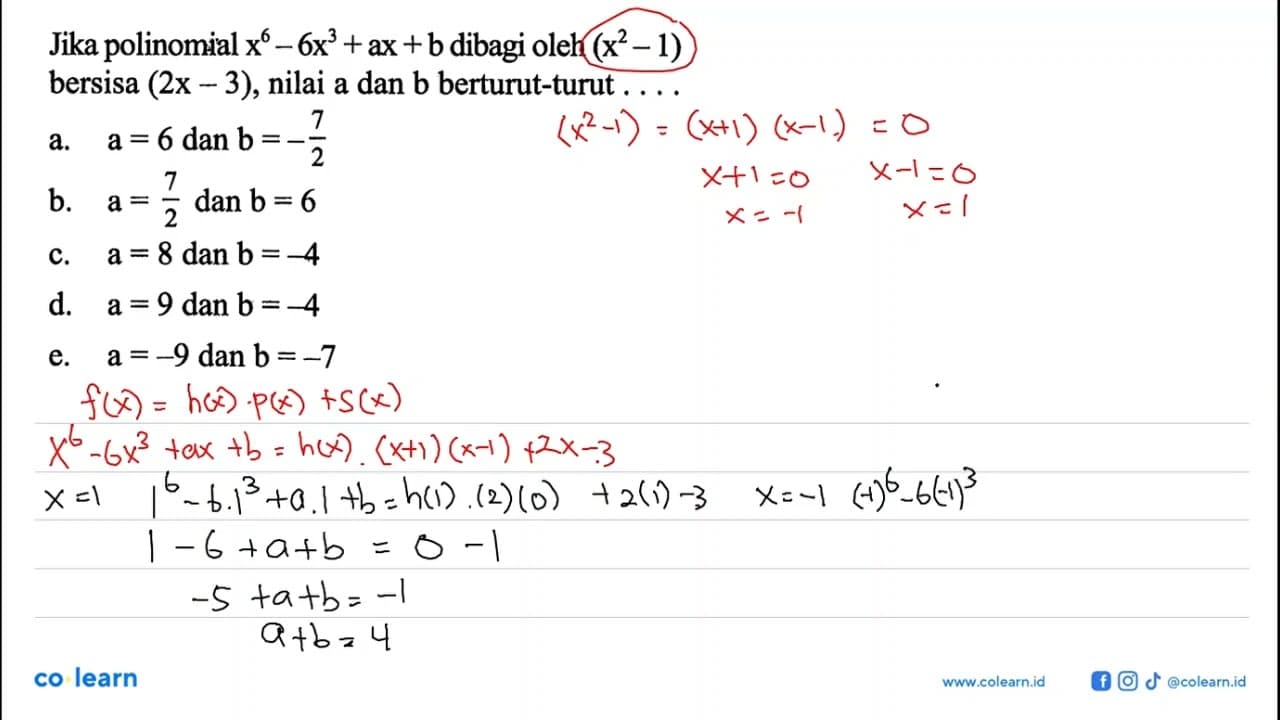 Jika polinomial x⁶ – 6x³ + ax + b dibagi oleh (x² – 1)
bersisa (2x – 3), nilai a dan b berturut-turut . . . .
a. a = 6 dan b = –7/2
b. a = 7/2 dan b = 6
c. a = 8 dan b = –4
d. a = 9 dan b = –4
e. a = –9 dan b = –7
(x²-1) = (x+1) (x-1) = 0
x+1=0 x-1=0
x=-1 x=1
f(x) = h(x) · p(x) + s(x)
x⁶ - 6x³ + ax + b = h(x) . (x+1) (x-1) + 2x - 3
x=1 1⁶ - 6.1³ + a.1 + b = h(1) . (2)(0) + 2(1) - 3 x=-1 (-1)⁶ - 6(-1)³
1 - 6 + a + b = 0 - 1
-5 + a + b = -1
a + b = 4
co learn
www.colearn.id
@colearn.id